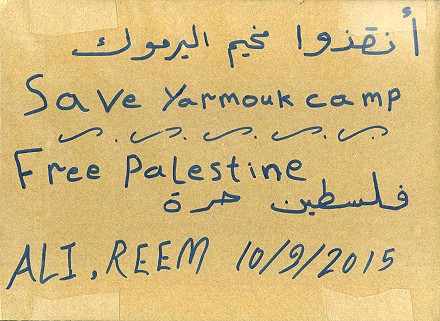 أنقذوا مخيم اليرموك
Save Yarmouk camp
Free Palestine
فلسطين حرة
ALI, REEM 10/9/2015